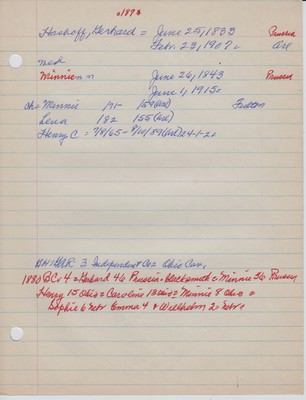 1873
Hashoff, Gerhard = June 25, 1833 Prussia
Febr. 23, 1907 Ord
med
Minnie June 26, 1843 Prussia
June 1, 1915
ch = Minnie 154 (Ord)
Lena 182 155 (Ord)
Henry C = 7/8/65 -
3 Independent Co = Ohio Cav.
1880 BC = 4 = Gerhard 46 Prussia = blacksmith = Minnie 36 Prussia
Henry 15 Ohio = Caroline 13 Ohio = Minnie 8 Ohio =
Sophie 6 Nebr Emma 4 & Wilhelm 2 Nebr